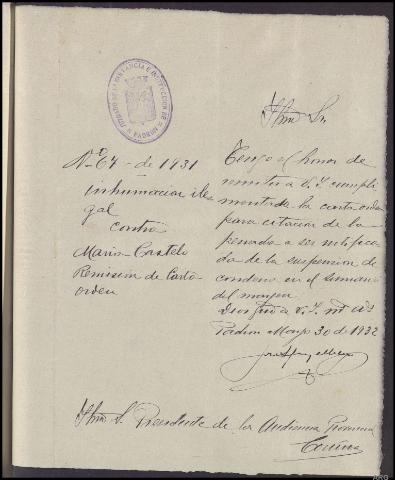 JUZGADO DE 1ª INSTANCIA E INSTRUCCION DE
PADRON
Ilmo Sr.
No 64 - de 1931
inhumacion ile
gal
contra
Maria Castelo
Remisión de Carta-
orden
Tengo el honor de
remitir a V. I. cumpli
mentada la carta orden
para citación de la
penada a ser notifica
da de la suspension de
condena en el sumario
del margen
Dios gue a V. I. ms as
Padron Mayo 30 de 1932
Ilmo S. Presidente de la Audiencia Provincial
Coruña